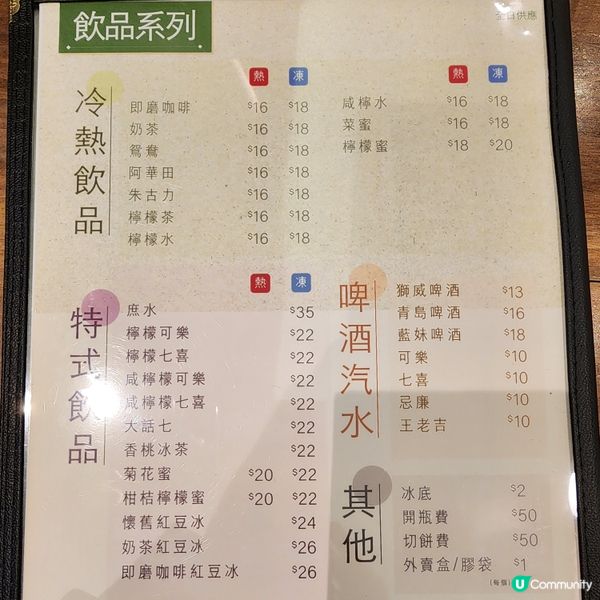 飲品系列
全日供應
冷熱飲品
熱 凍
即磨咖啡 $16 $18
奶茶 $16 $18
鴛鴦 $16 $18
阿華田 $16 $18
朱古力 $16 $18
檸檬茶 $16 $18
檸檬水 $16 $18
熱 凍
咸檸水 $16 $18
菜蜜 $16 $18
檸檬蜜 $18 $20
特式飲品
熱 凍
庶水 $35
檸檬可樂 $22
檸檬七喜 $22
咸檸檬可樂 $22
咸檸檬七喜 $22
大話七 $22
香桃冰茶 $22
菊花蜜 $20 $22
柑桔檸檬蜜 $20 $22
懷舊紅豆冰 $24
奶茶紅豆冰 $26
即磨咖啡紅豆冰 $26
啤酒汽水
獅威啤酒 $13
青島啤酒 $16
藍妹啤酒 $18
可樂 $10
七喜 $10
忌廉 $10
王老吉 $10
其他
冰底 $2
開瓶費 $50
切餅費 $50
外賣盒/膠袋 $1
(每個)
U Community